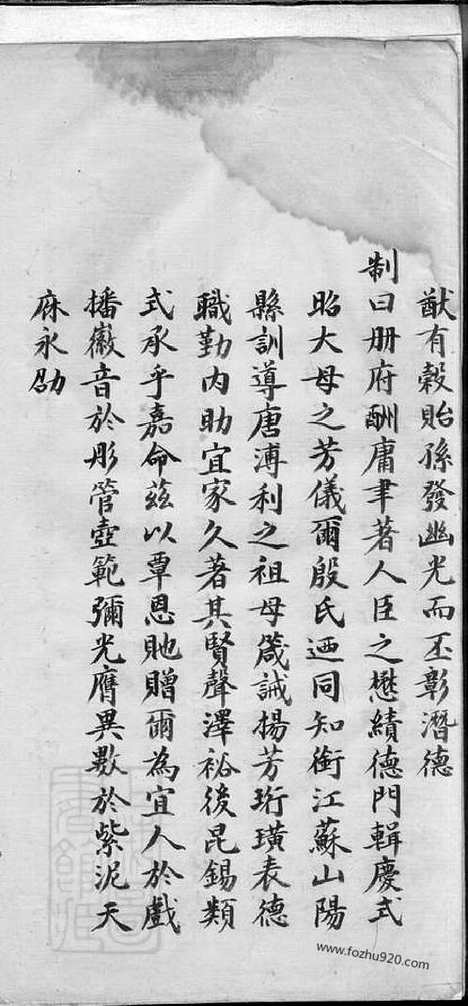 猷有穀貽孫發幽光而丕彰潛德
制曰册府酬庸聿著人臣之懋績德門輯慶式
昭大母之芳儀爾殷氏迺同知銜江蘇山陽
縣訓導唐溥利之祖母箴誡揚芳珩璜表德
職勤内助宜家久著其賢聲澤裕後昆錫類
式承乎嘉命茲以覃恩貤贈爾為宜人於戲
播徽音於彤管壼範彌光膺異數於紫泥天
庥永劭
www.fozhu920.com